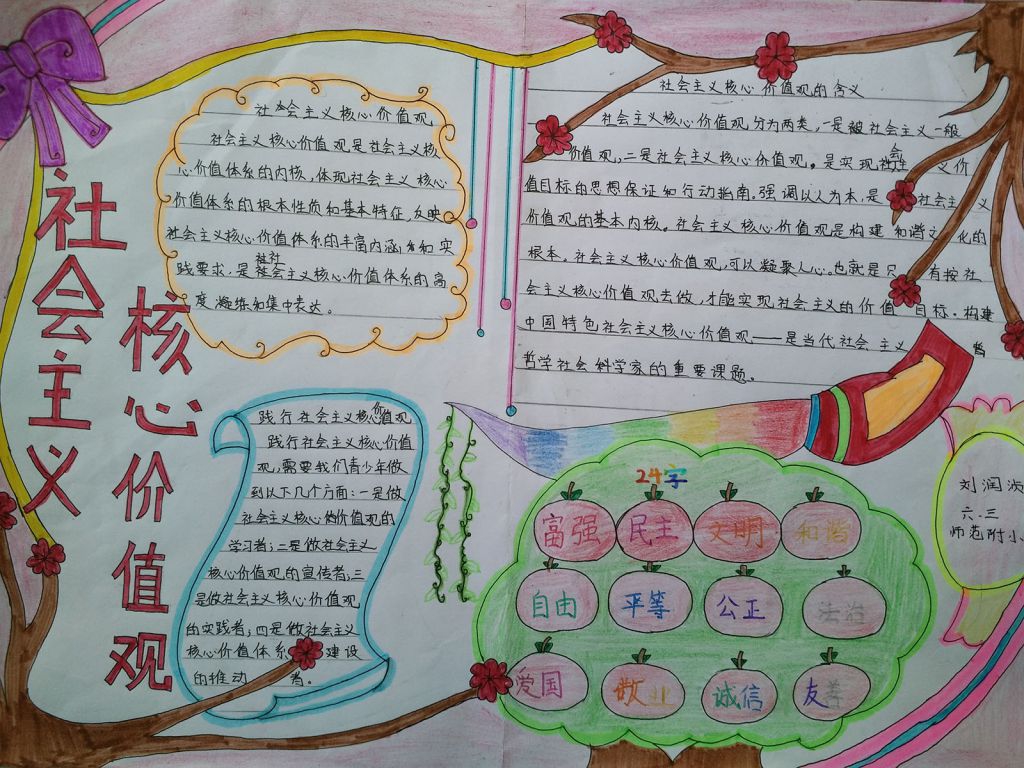 社会主义
核心价值观
社会主义核心价值观
社会主义核心价值观是社会主义核
心价值体系的内核,体现社会主义核心
价值体系的根本性质和基本特征,反映
社会主义核心价值体系的丰富内涵和实
践要求,是社会主义核心价值体系的高
度凝练和集中表达。
践行社会主义核心价值观
践行社会主义核心价值
观,需要我们青少年做
到以下几个方面:一是做
社会主义核心价值观的
学习者;二是做社会主义
核心价值观的宣传者;三
是做社会主义核心价值观
的实践者;四是做社会主义
核心价值体系建设
的推动者。
社会主义核心价值观的含义
社会主义核心价值观分为两类,一是被社会主义一般
价值观,二是社会主义核心价值观。是实现社会主义价
值目标的思想保证和行动指南。强调以人为本,是社会主义
价值观的基本内核。社会主义核心价值观是构建和谐文化的
根本。社会主义核心价值观,可以凝聚人心。也就是只有按社
会主义核心价值观去做,才能实现社会主义的价值目标。构建
中国特色社会主义核心价值观——是当代社会主义
哲学社会科学家的重要课题。
24字
富强 民主 文明 和谐
自由 平等 公正 法治
爱国 敬业 诚信 友善
刘润
六.三
师范附小